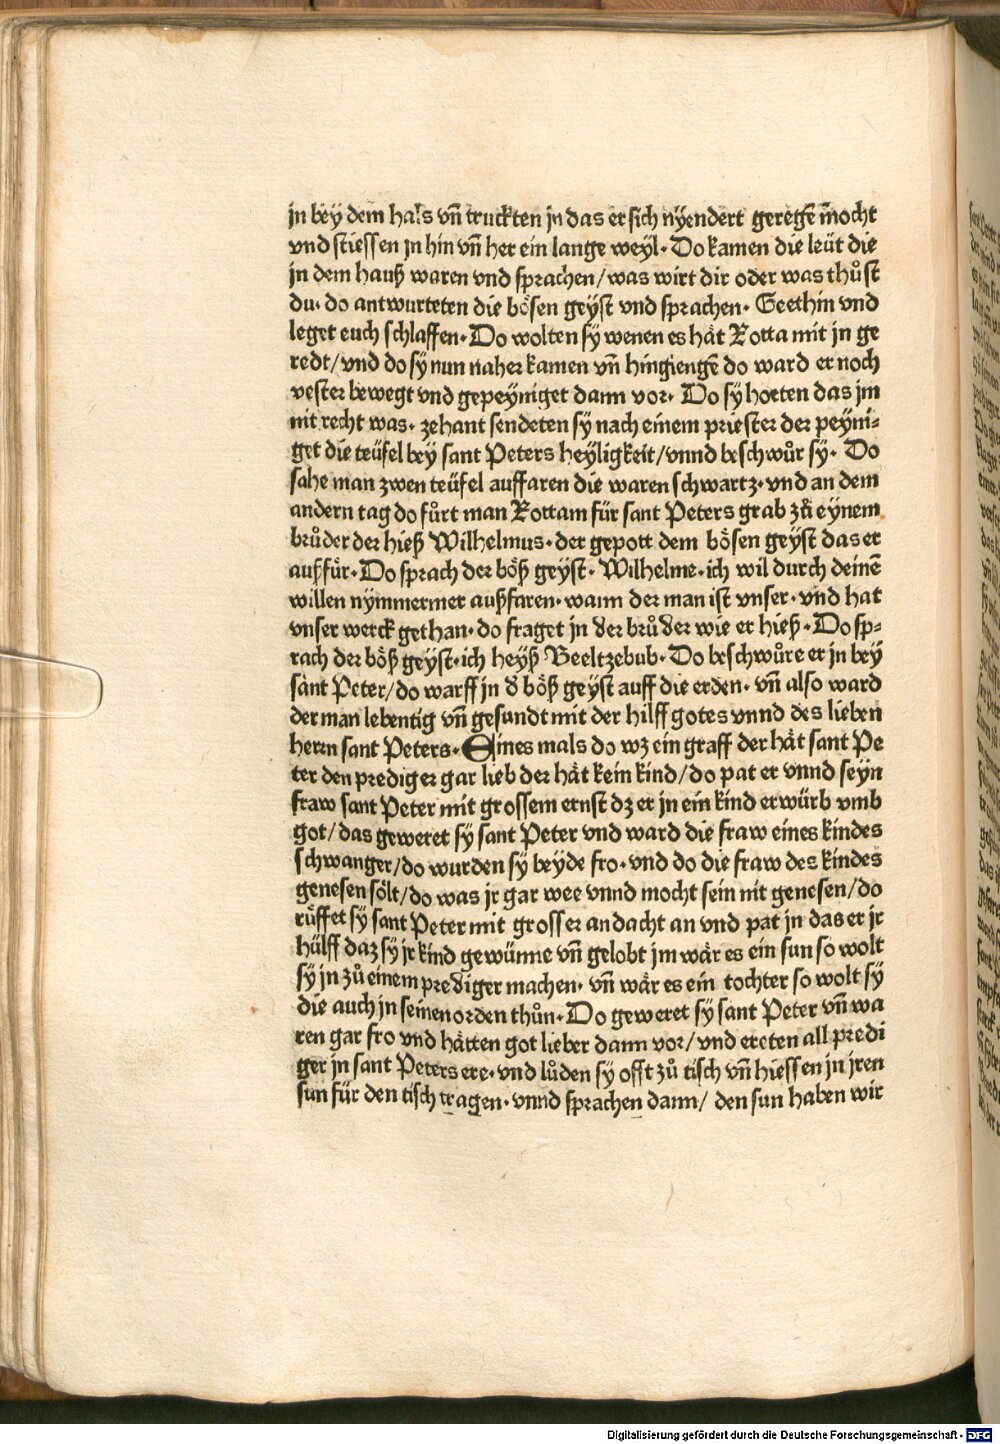 jn bey dem hals vñ truckten jn das er sich nÿendert geregẽ mocht
vnd stiessen jn hin vñ her ein lange weyl· Do kamen die leüt die
jn dem hauß waren vnd sprachen/was wirt dir oder was thůst
du· do antwurteten die bösen geyst vnd sprachen· Geethin vnd
leget euch schlaffen· Do wolten sÿ wenen es hät Rotta mit jn ge
redt/vnd do sÿ nun naher kamen vñ hingiengẽ do ward er noch
vester bewegt vnd gepeyniget dann vor· Do sÿ horten das jm
nit recht was· zehant sendeten sÿ nach einem priester der peyni⸗
get die teüfel bey sant Peters heyligkeit/vnnd beschwůr sy· Do
sahe man zwen teüfel auffaren die waren schwartz·vnd an dem
andern tag do fůrt man Rottam für sant Peters grab zů eynem
brůder der hieß Wilhelmus· der gepott dem bösen geyst das er
außfůr· Do sprach der böß geyst· Wilhelme·ich wil durch deinẽ
willen nÿmmermer außfaren·wann der man ist vnser·vnd hat
vnser werck gethan·do fraget jn der brůder wie er hieß· Do sp⸗
rach der böß geyst·ich heyß Beeltzebub· Do beschwůre er jn bey
sant Peter/do warff jn d böß geyst auff die erden· vñ also ward
der man lebentig vñ gesundt mit der hilff gotes vnnd des lieben
herrn sant Peters· Eines mals do wz ein graff der hät sant Pe
ter den prediger gar lieb der hät kein kind/do pat er vnnd seyn
fraw sant Peter mit grossem ernst dz er jn ein kind erwürb vmb
got/das geweret sÿ sant Peter vnd ward die fraw eines kindes
schwanger/do wurden sÿ beyde fro·vnd do die fraw des kindes
genesen sölt/do was jr gar wee vnnd mocht sein nit genesen/do
rüffet sÿ sant Peter mit grosser andacht an vnd pat jn das er jr
hülff daz sÿ jr kind gewünne vñ gelobt jm wär es ein sun so wolt
sÿ jn zů einem prediger machen· vñ wär es ein tochter so wolt sÿ
die auch jn seinen orden thůn· Do geweret sÿ sant Peter vñ wa
ren gar fro vnd hätten got lieber dann vor/vnd ereten all predi
ger jn sant Peters ere·vnd lůden sÿ offt zů tisch vñ hiessen jn jren
sun für den tisch tragen·vnnd sprachen dann/ den sun haben wir
Digitalisierung gefördert durch die Deutsche Forschungsgemeinschaft - DFG